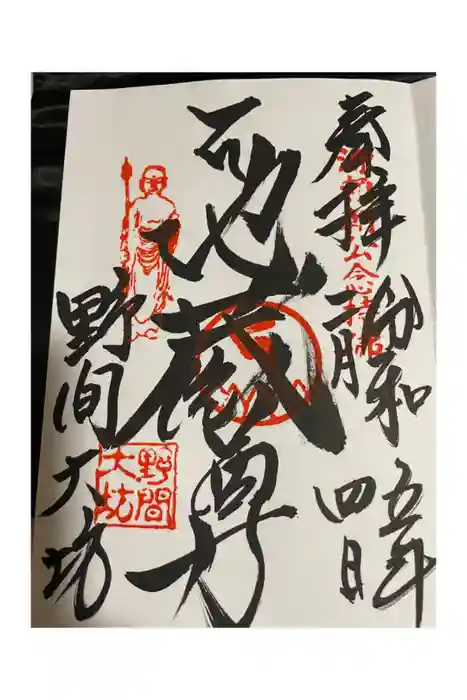 奉拝
令和五年
二月四日
公念持佛
地蔵尊
野間大坊
野間
大坊